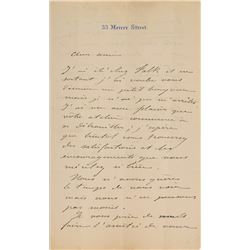 33 Mercer Street
Cher ami
J'ai été chez Falk et en
sortant j'ai voulu vous
donner un petit bonjour
mais je n'ai pu m'arrêter
J'ai vu avec plaisir que
votre atelier commence à
se débrouiller, j'espère
que bientôt vous trouverez
des satisfactions et des
encouragements que vous
méritez si bien.
Nous n'avons guère
le temps de nous voir
mais nous n'en pensons
pas moins.
Je vous prie de
faire l'amitié de vous